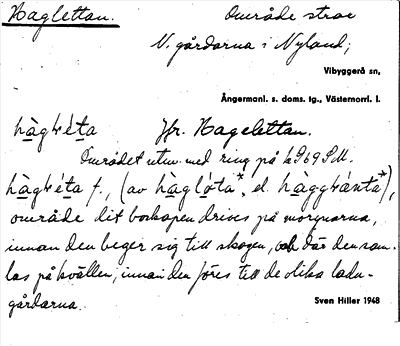 Haglettan. Område strax
N. gårdarna i Nyland;
Vibyggerå sn,
Ångermanl. s. doms. tg., Västernorrl. l.
Jfr. Hagelettan.
Området utm. med ring på
område dit boskapen drives på morgnarna,
innan den beger sig till skogen, och där den sam-
las på kvällen, innan den föres till de olika ladu-
gårdarna.
Sven Hiller 1948